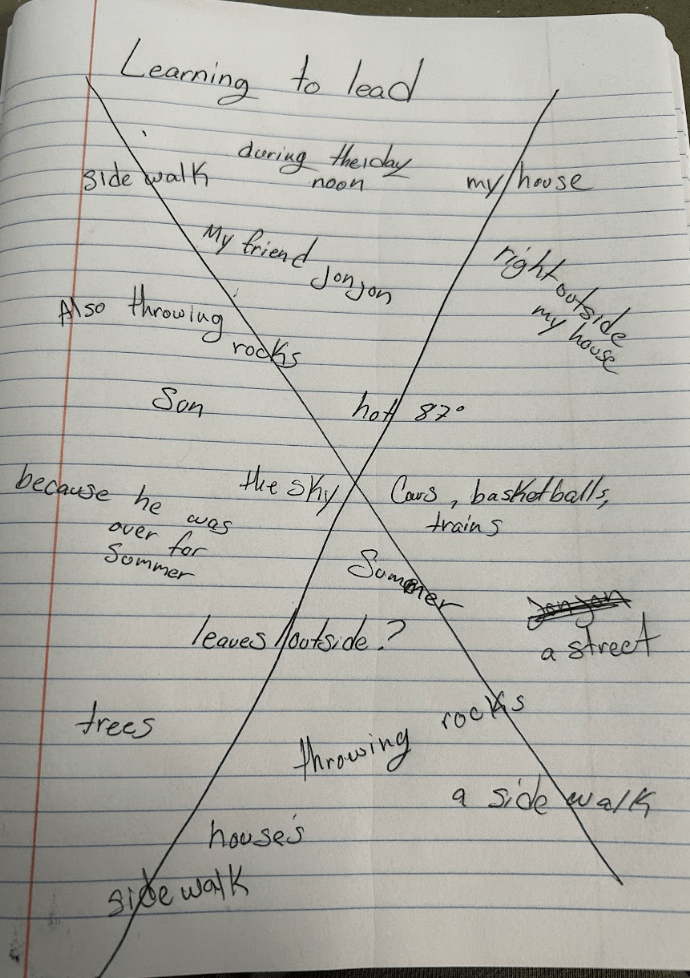 Learning to lead
during the day
noon
side walk
my house
My friend
Jonjon
right outside
my house
Also throwing
rocks
Son
hot 87°
the sky
Cars, basketballs,
trains
because he was
over for
Sommer
Summer
leaves outside?
Jonjon
a street
trees
rocks
throwing
a side walk
house's
side walk